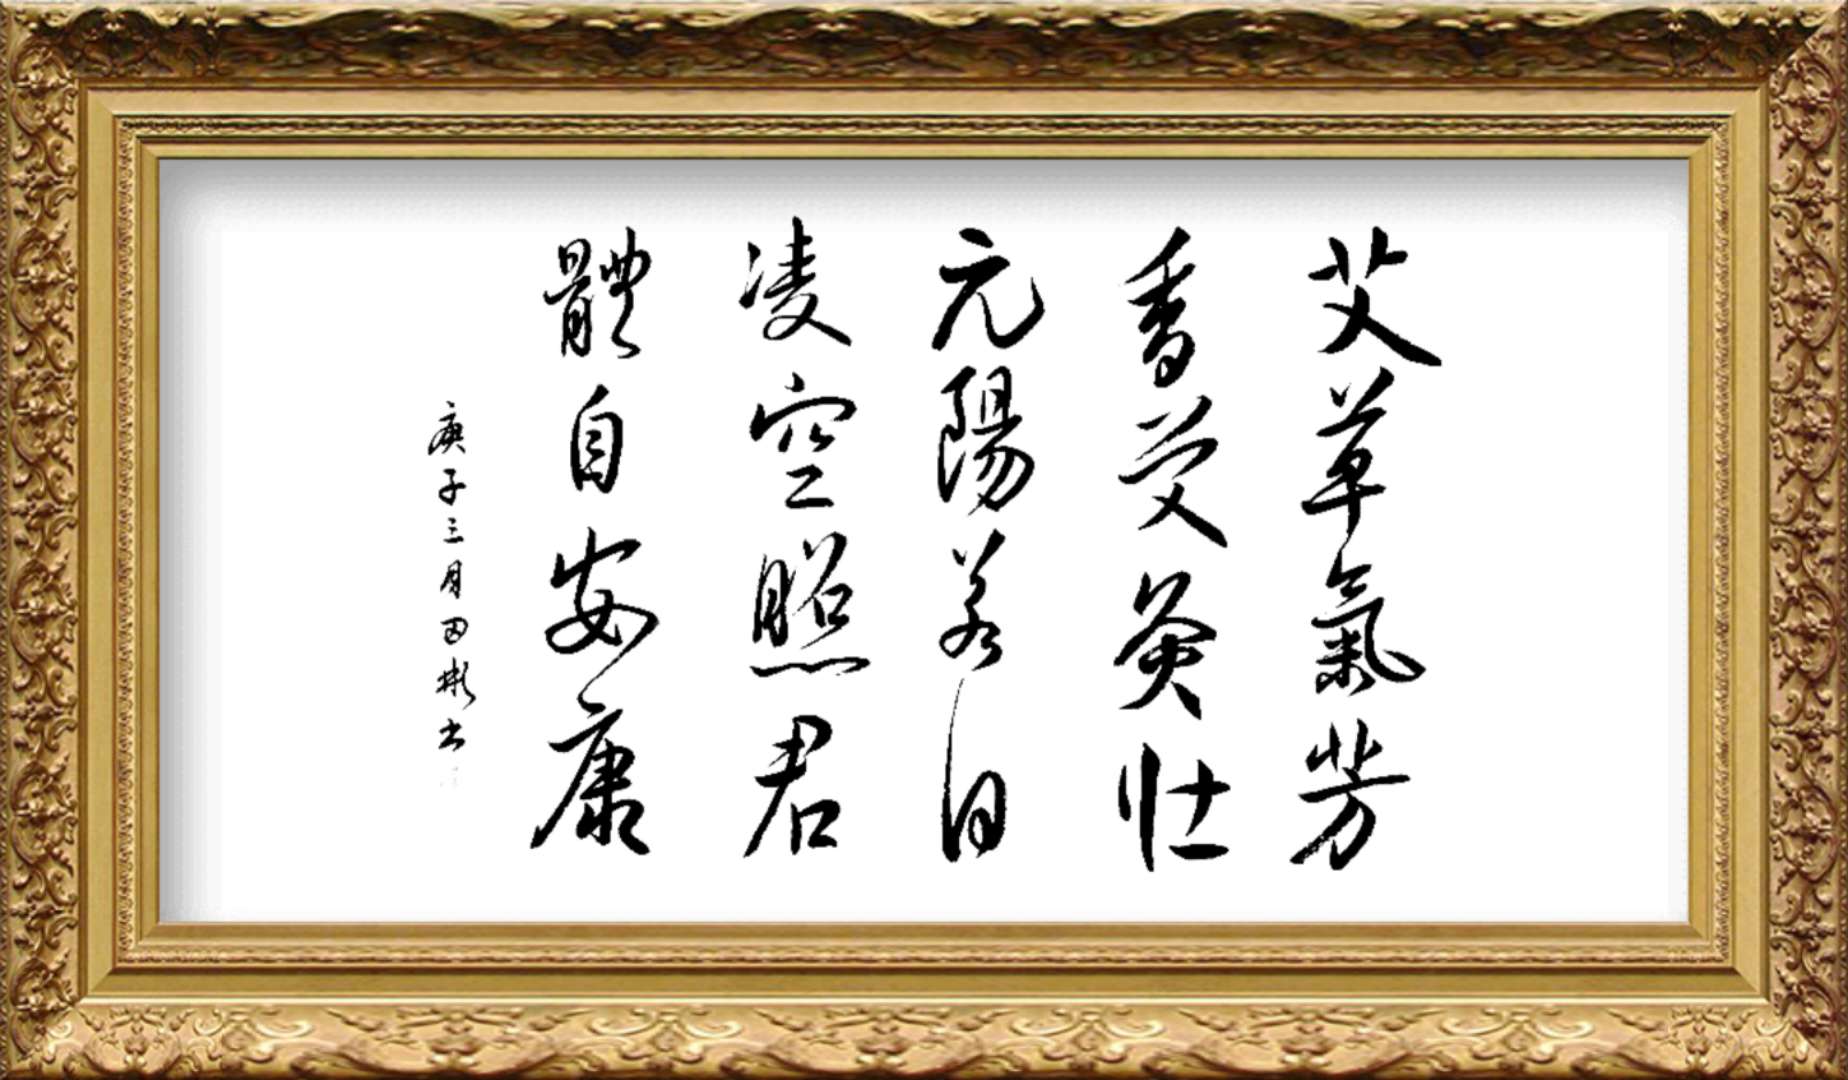 艾草氣芳
香受灸壯
元陽若日
凌空照君
體自安康
庚子三月田彬书